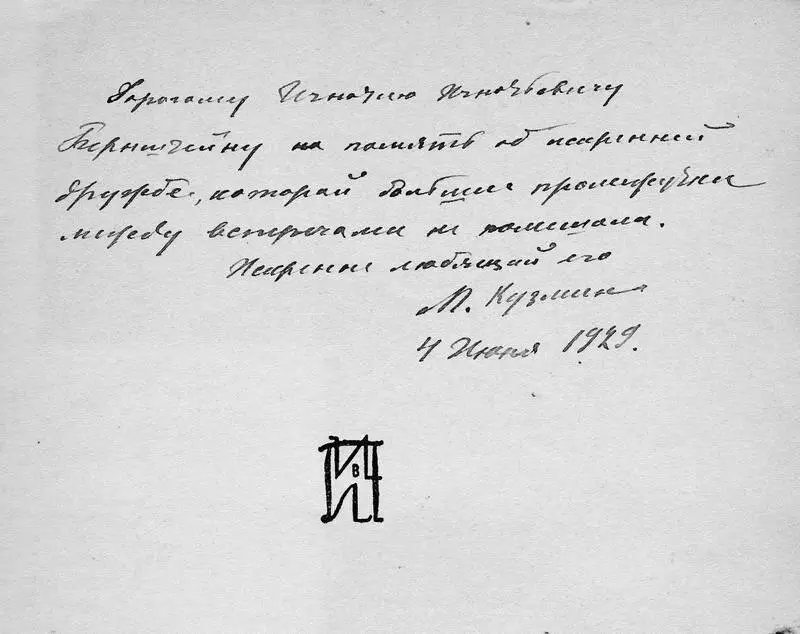 Дорогому Игнатию Игнатьевичу
Бернштейну на память об искренней
дружбе, которой большие промежутки
между встречами не помешали.
Искренне любящий его
М. Кузмин
4 Июня 1929.
В